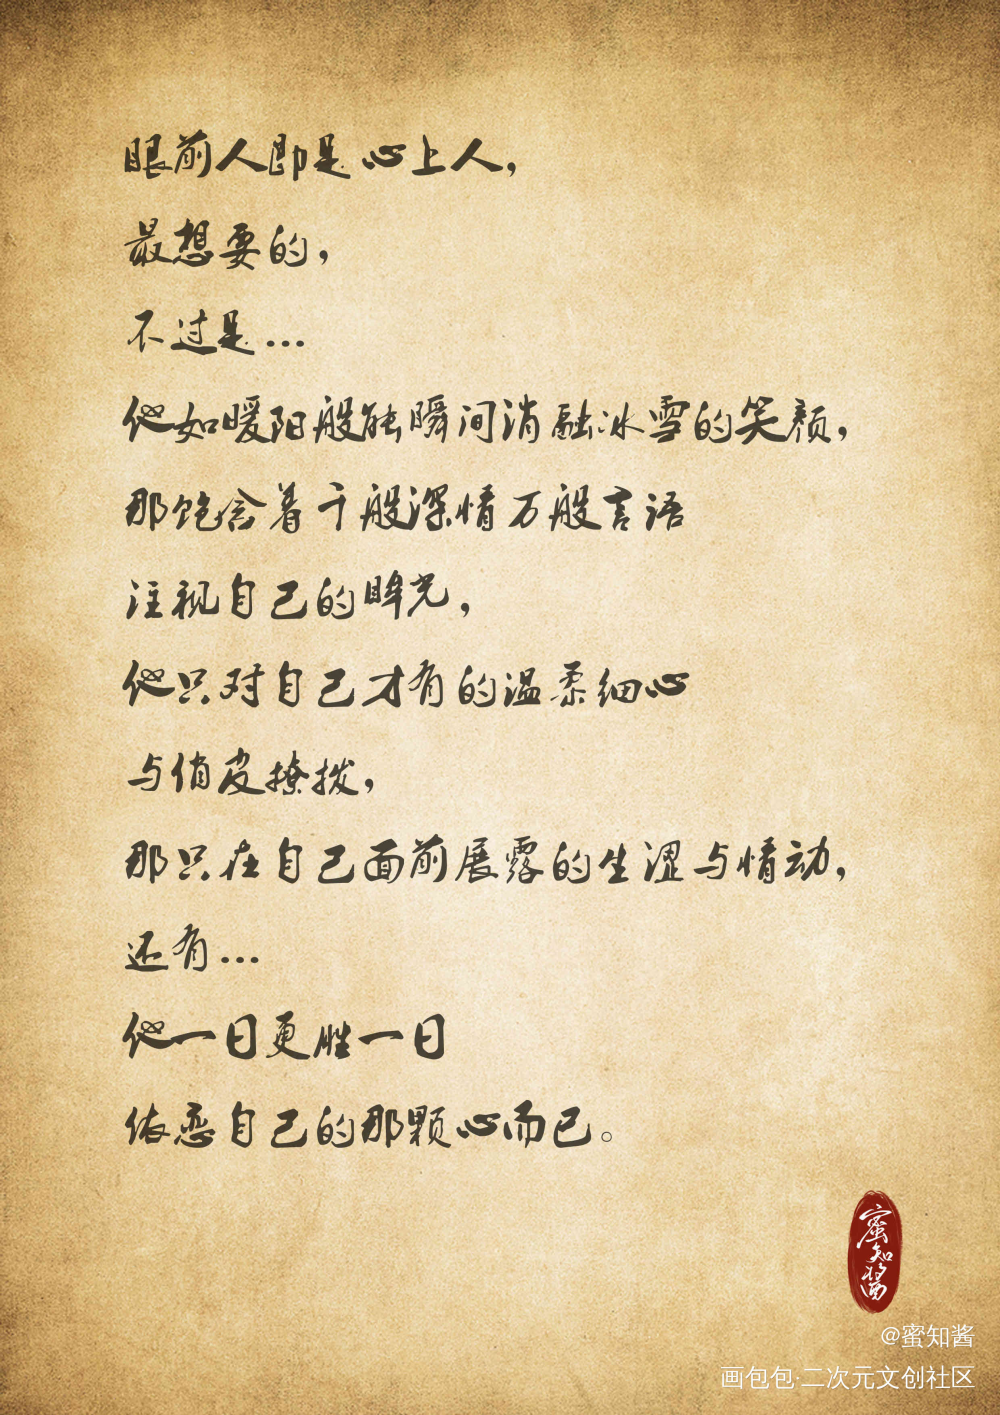 眼前人即是心上人，
最想要的，
不过是…
他如暖阳般能瞬间消融冰雪的笑颜，
那饱含着千般深情万般言语
注视自己的眸光，
他只对自己才有的温柔细心
与俏皮撩拨，
那只在自己面前展露的生涩与情动，
还有…
他一日更胜一日
依恋自己的那颗心而已。
蜜知酱
@蜜知酱
画包包·二次元文创社区